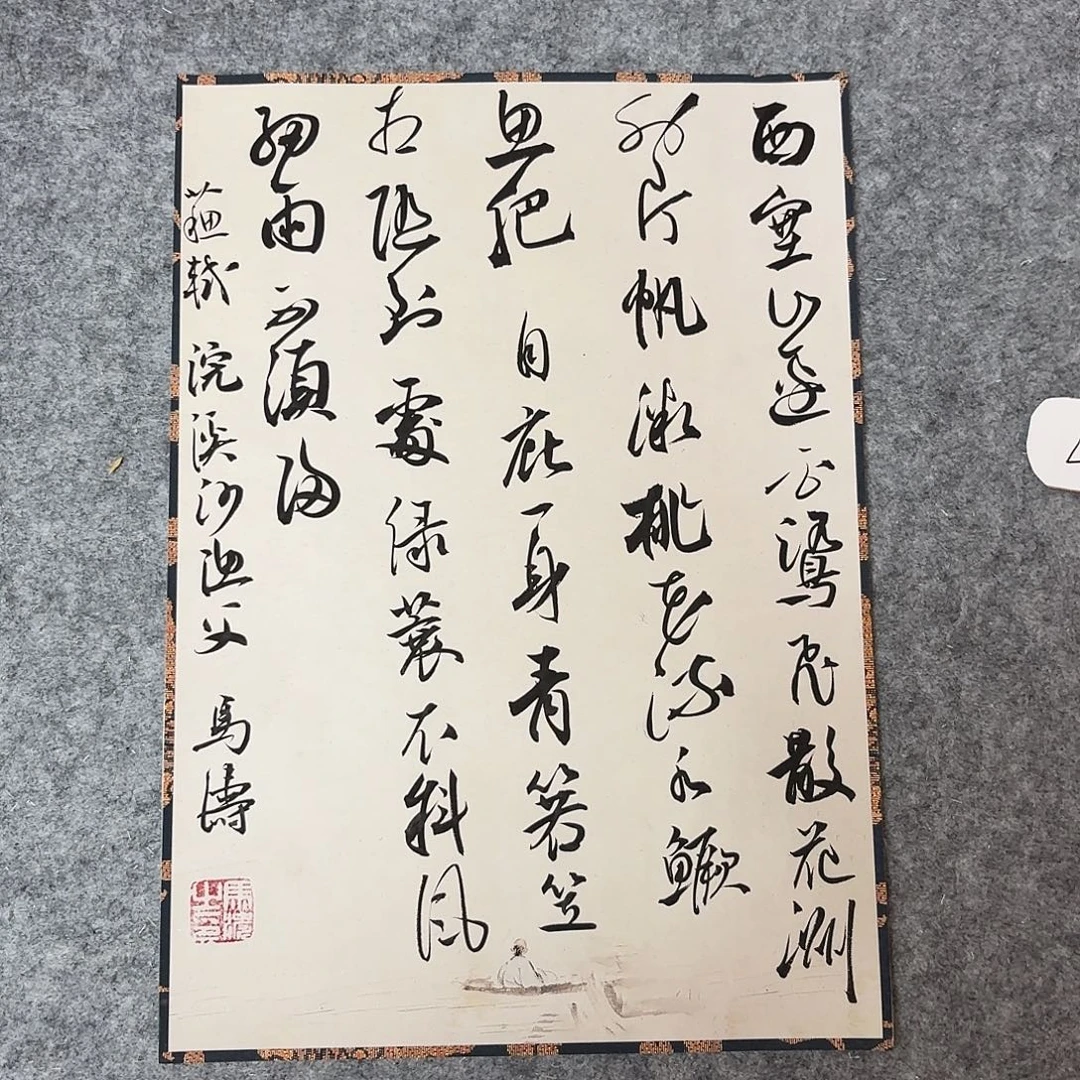 西塞山邊白鷺飛散花洲
外片帆微桃花流水鱖
魚肥 自庇一身青箬笠
相随到處緑蓑衣斜風
細雨不須歸
蘇軾 浣溪沙漁父 馬濤